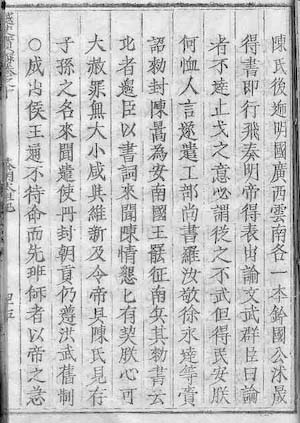 陳氏後遞明國廣西雲南各一本黔國公沐晟
得書即行飛奏明帝得表出諭文武群臣曰論
者不達止戈之意必謂從之不武但得民安朕
何恤人言遂遣工部尚書羅汝敬徐永達等賫
詔勑封陳暠為安南國王罷征南兵其勑書云
比者邊臣以書詞來聞陳情懇〻有契朕心可
大赦罪無大小咸與維新及令帝具陳氏見存
子孫之名來聞遣使冊封朝貢仍遵洪武舊制
○成山侯王通不待命而先班師者以帝之急